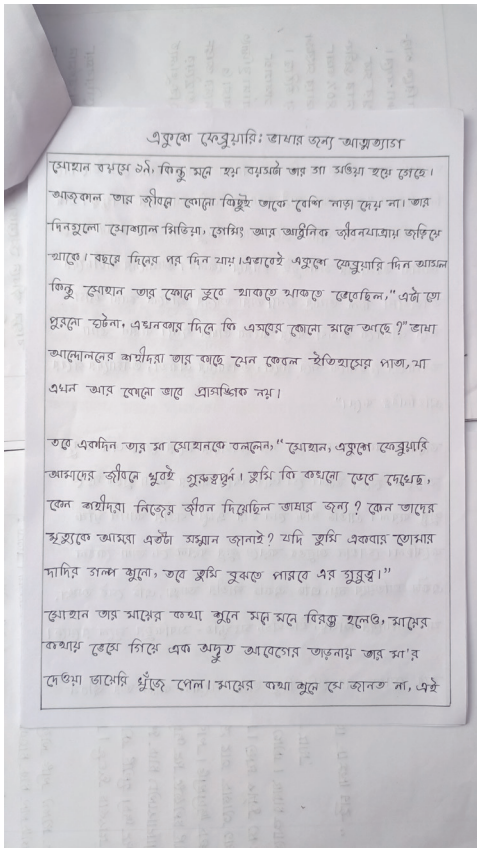 একুশে ফেব্রুয়ারি: ভাষার জন্য আত্মত্যাগ
সোহান বয়সে ১৭, কিন্তু মনে হয় বয়সটা তার সা সওয়া হয়ে গেছে।
আজকাল তার জীবনে কোনো কিছুই তাকে বেশি নাড়া দেয় না। তার
দিনগুলো সোশ্যাল মিডিয়া, গেমিং আর আধুনিক জীবনযাত্রায় জড়িয়ে
থাকে। বছরে দিনের পর দিন যায়। এভাবেই একুশে ফেব্রুয়ারি দিন আসল
কিন্তু সোহান তার ফোনে ডুবে থাকতে থাকতে ভেবেছিল, "এটা তো
পুরনো ঘটনা, এখনকার দিনে কি এসবের কোনো মানে আছে?" ভাষা
আন্দোলনের শহীদরা তার কাছে যেন কেবল ইতিহাসের পাতা, যা
এখন আর কোনো ভাবে প্রাসঙ্গিক নয়।
তবে একদিন তার মা সোহানকে বললেন, "সোহান, একুশে ফেব্রুয়ারি
আমাদের জীবনে খুবই গুরুত্বপূর্ণ। তুমি কি কখনো ভেবে দেখেছ,
কেন শহীদরা নিজের জীবন দিয়েছিল ভাষার জন্য? কেন তাদের
মৃত্যুকে আমরা এতটা সম্মান জানাই? যদি তুমি একবার তোমার
দাদির গল্প শুনো, তবে তুমি বুঝতে পারবে এর গুরুত্ব।"
সোহান তার মায়ের কথা শুনে মনে মনে বিরক্ত হলেও, মায়ের
কথায় ভেসে গিয়ে এক অদ্ভুত আবেগের তাড়নায় তার মা'র
দেওয়া ডায়েরি খুঁজে পেল। মায়ের কথা শুনে সে জানত না, এই